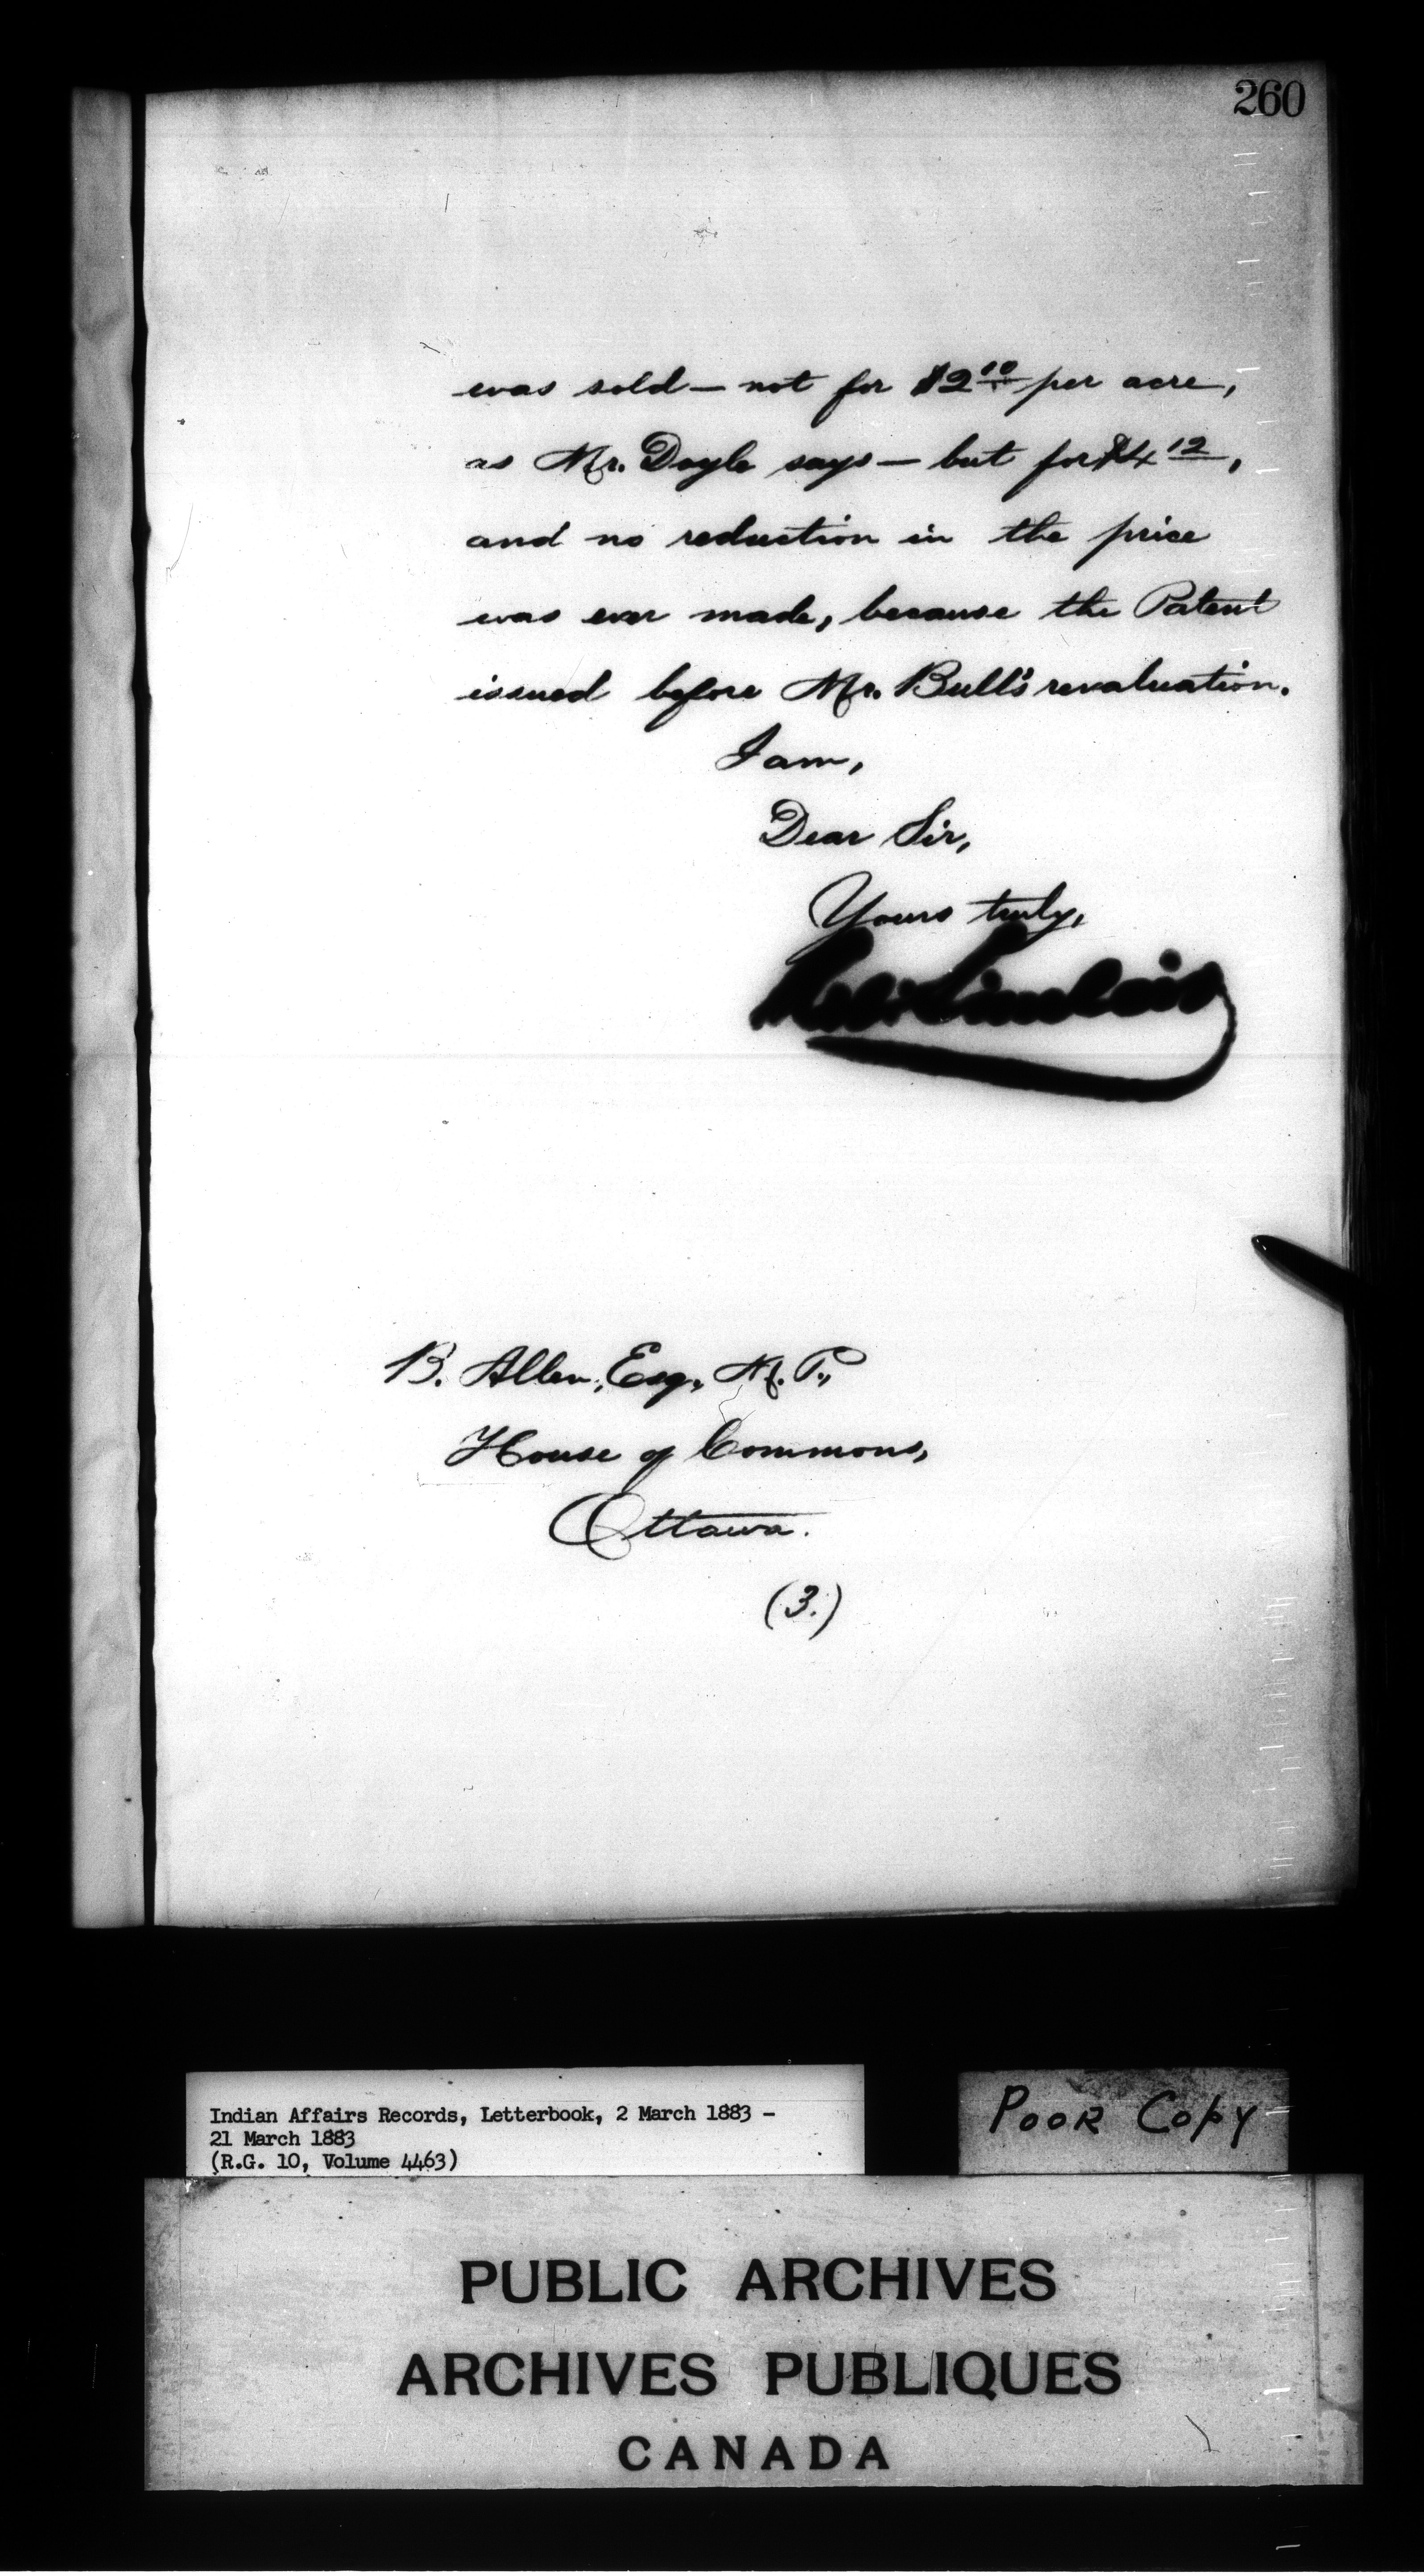 260
was sold — not for $2 10 per acre,
as Mr. Doyle says — but for $4 12,
and no reduction in the price
was ever made, because the Patent
issued before Mr. Bull's revaluation.
I am,
Dear Sir,
Yours truly,
Sinclair
B. Allen, Esq., M. P.,
House of Commons,
Ottawa.
(3.)
Indian Affairs Records, Letterbook, 2 March 1883 -
21 March 1883
(R.G. 10, Volume 4463)
POOR COPY
PUBLIC ARCHIVES
ARCHIVES PUBLIQUES
CANADA